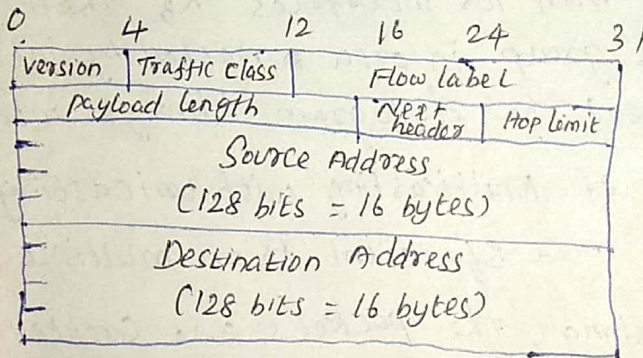 0 4 12 16 24 31
version Traffic class Flow label
payload length Next header Hop limit
Source Address
(128 bits = 16 bytes)
Destination Address
(128 bits = 16 bytes)